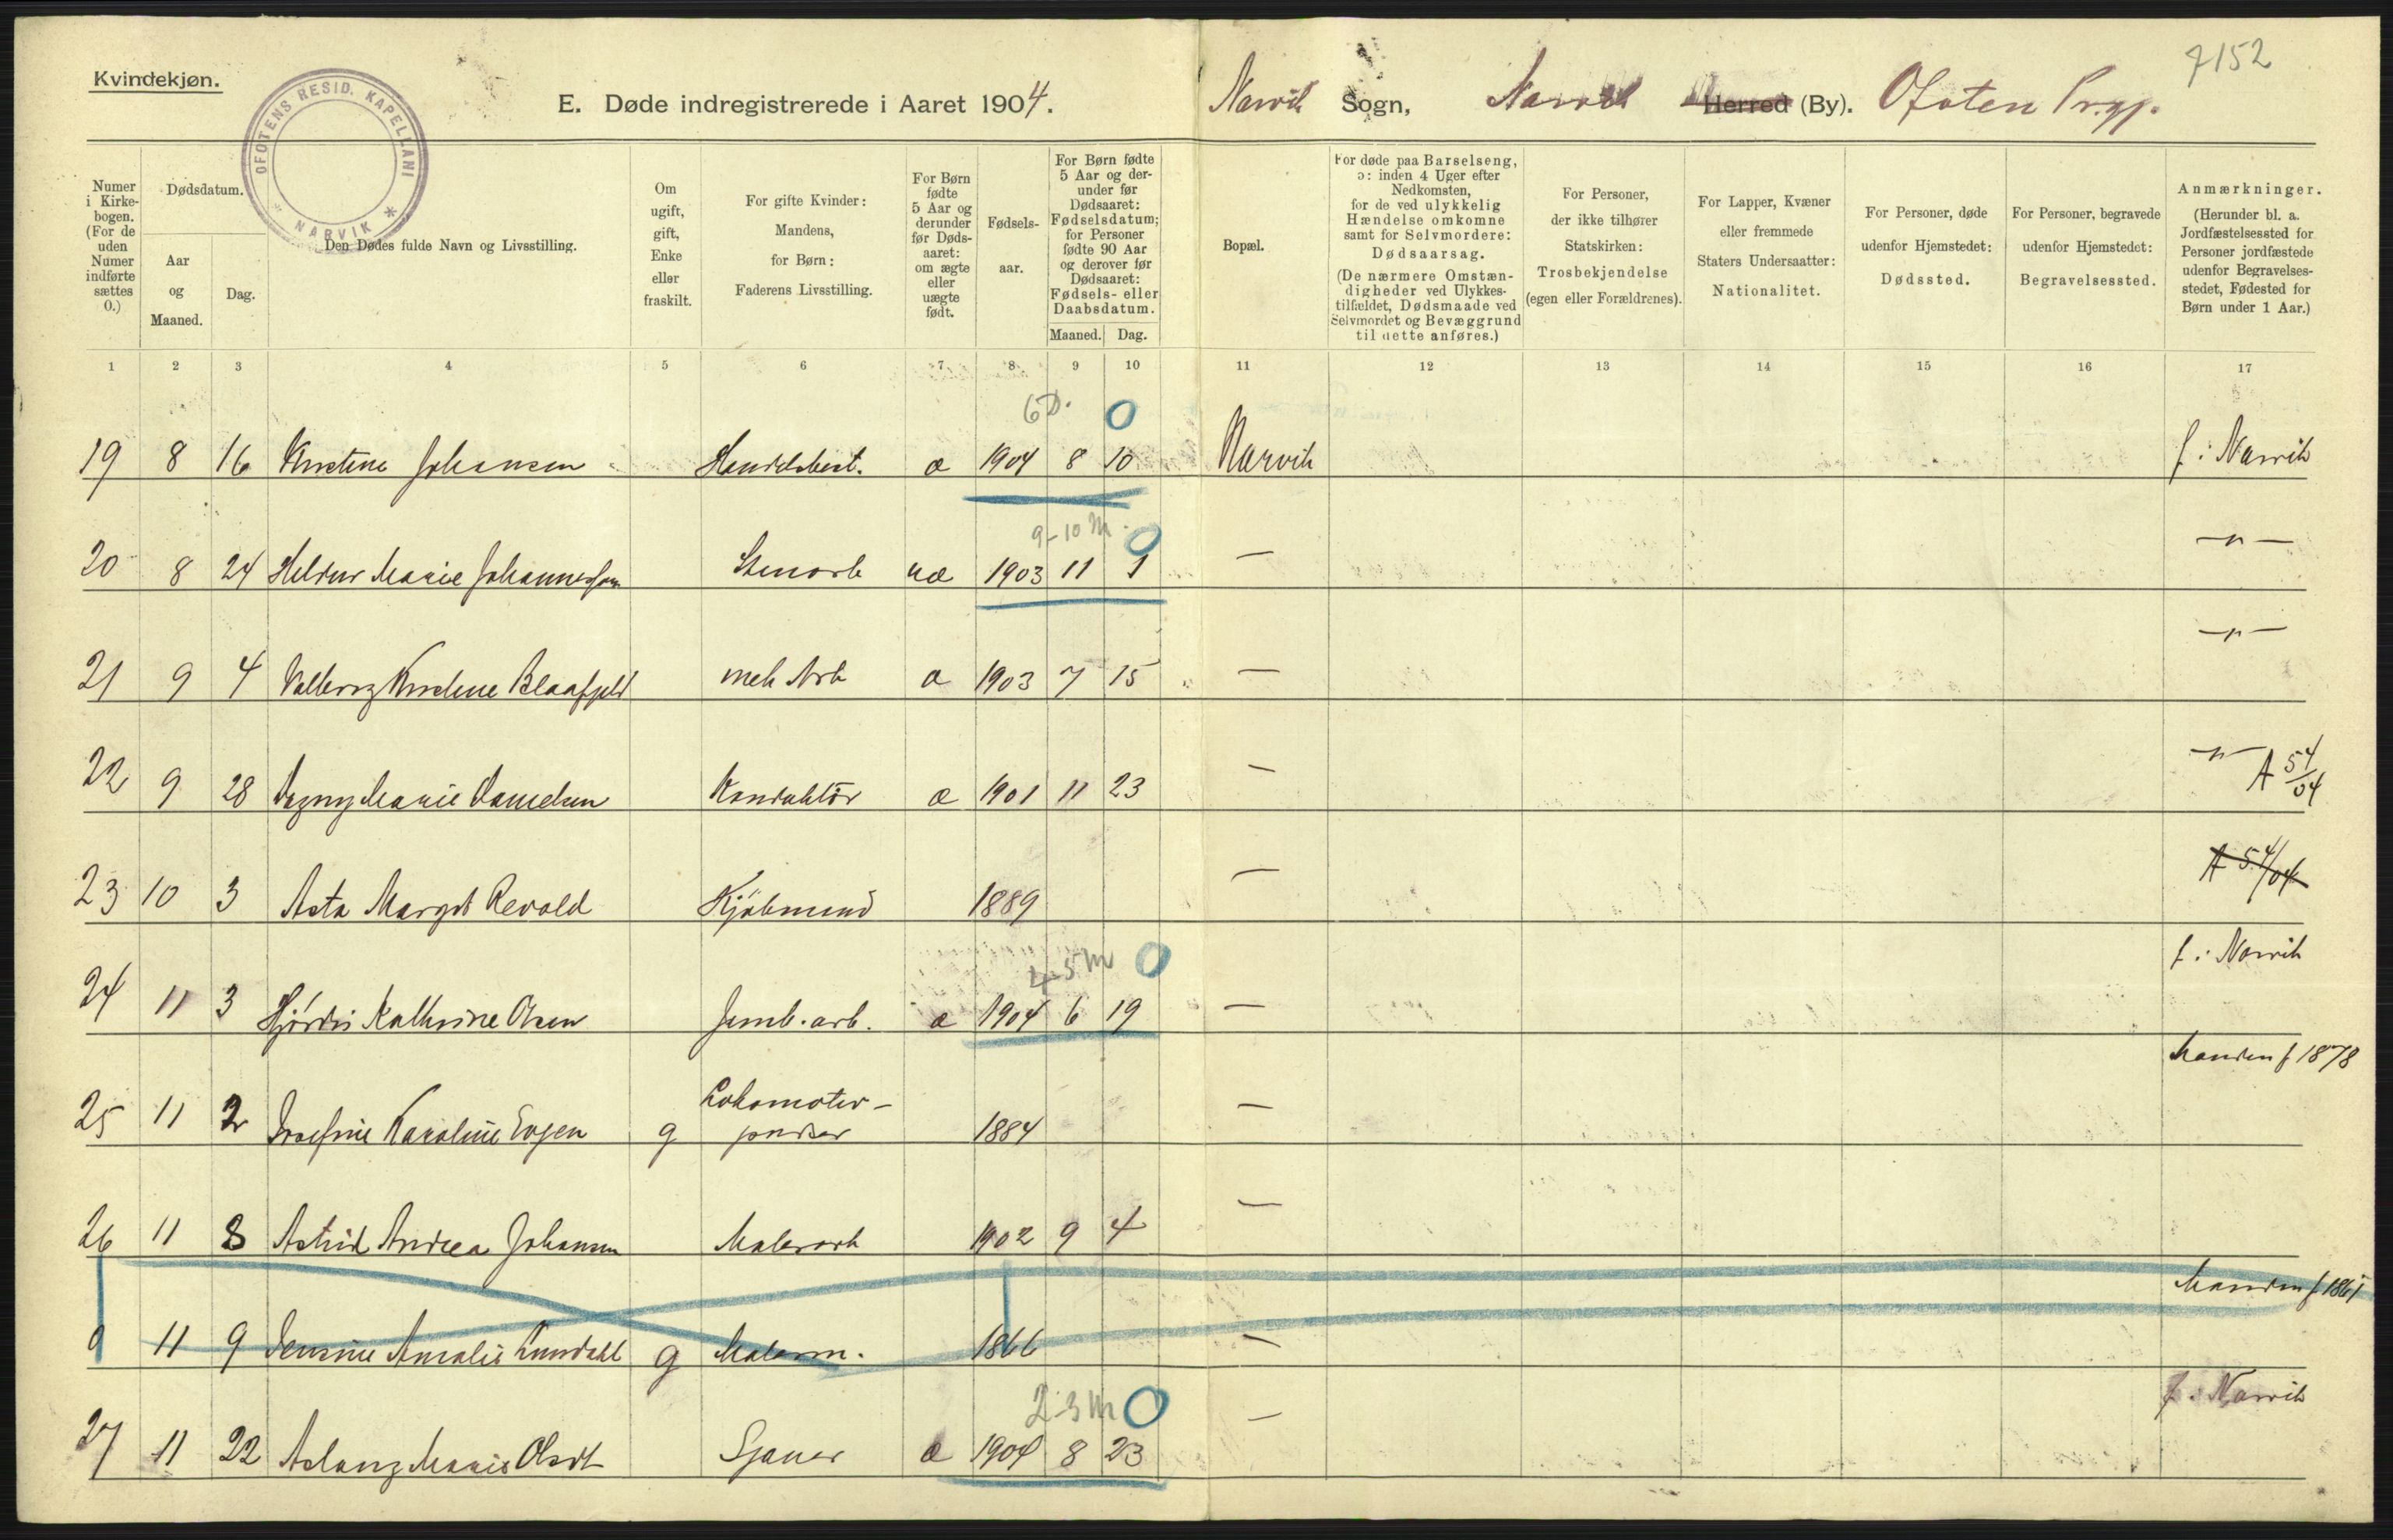 7152
Kvindekjøn.
OFOTENS RESID. KAPELLANI * NARVIK *
E. Døde indregistrerede i Aaret 1904.
Narvik Sogn, Narvik Herred (By). Ofoten Prgj.
Numer i Kirkebogen. (For de uden Numer indførte sættes 0.)
Dødsdatum.
Aar og Maaned.
Dag.
Den Dødes fulde Navn og Livsstilling.
Om ugift, gift, Enke eller fraskilt.
For gifte Kvinder: Mandens, for Børn: Faderens Livsstilling.
For Børn fødte 5 Aar og derunder før Dødsaaret: om ægte eller uægte født.
Fødselsaar.
For Børn fødte 5 Aar og derunder før Dødsaaret: Fødselsdatum; for Personer fødte 90 Aar og derover før Dødsaaret: Fødsels- eller Daabsdatum.
Maaned. Dag.
Bopæl.
For døde paa Barselseng, ɔ: inden 4 Uger efter Nedkomsten, for de ved ulykkelig Hændelse omkomne samt for Selvmordere: Dødsaarsag. (De nærmere Omstændigheder ved Ulykkestilfældet, Dødsmaade ved Selvmordet og Bevæggrund til dette anføres.)
For Personer, der ikke tilhører Statskirken: Trosbekjendelse (egen eller Forældrenes).
For Lapper, Kvæner eller fremmede Staters Undersaatter: Nationalitet.
For Personer, døde udenfor Hjemstedet: Dødssted.
For Personer, begravede udenfor Hjemstedet: Begravelsessted.
Anmærkninger. (Herunder bl. a. Jordfæstelsessted for Personer jordfæstede udenfor Begravelsesstedet, Fødested for Børn under 1 Aar.)
1 2 3 4 5 6 7 8 9 10 11 12 13 14 15 16 17
6 D. 0
19 8 16 Kristine Johansen Handelsbest. æ 1904 8 10 Narvik f. i Narvik
9-10 M. 0
20 8 24 Marie Johannessen Stenarb uæ 1903 11 1 — —"—
21 9 4 Valborg Kristine Blaafjeld mek Arb æ 1903 7 15 — —"—
22 9 28 Dagny Marie Danielsen Konduktör æ 1901 11 23 — —"— A 54/04
23 10 3 Asta Margit Revold Kjøbmand 1889 — A 54/04
4-5 M 0
24 11 3 Hjørdis Kathrine Olsen Jernb. arb. æ 1904 6 19 — f. i Narvik
25 11 2 Josefine Karoline Evjen g Lokomotiv- pudser 1884 — Manden f 1878
26 11 8 Astrid Andrea Johansen Malerarb 1902 9 4 —
0 11 9 Jensine Amalie Lundahl g Malerm. 1866 — Manden f 1861
2-3 M 0
27 11 22 Aslaug Marie Sjauer æ 1904 8 23 — f. i Narvik